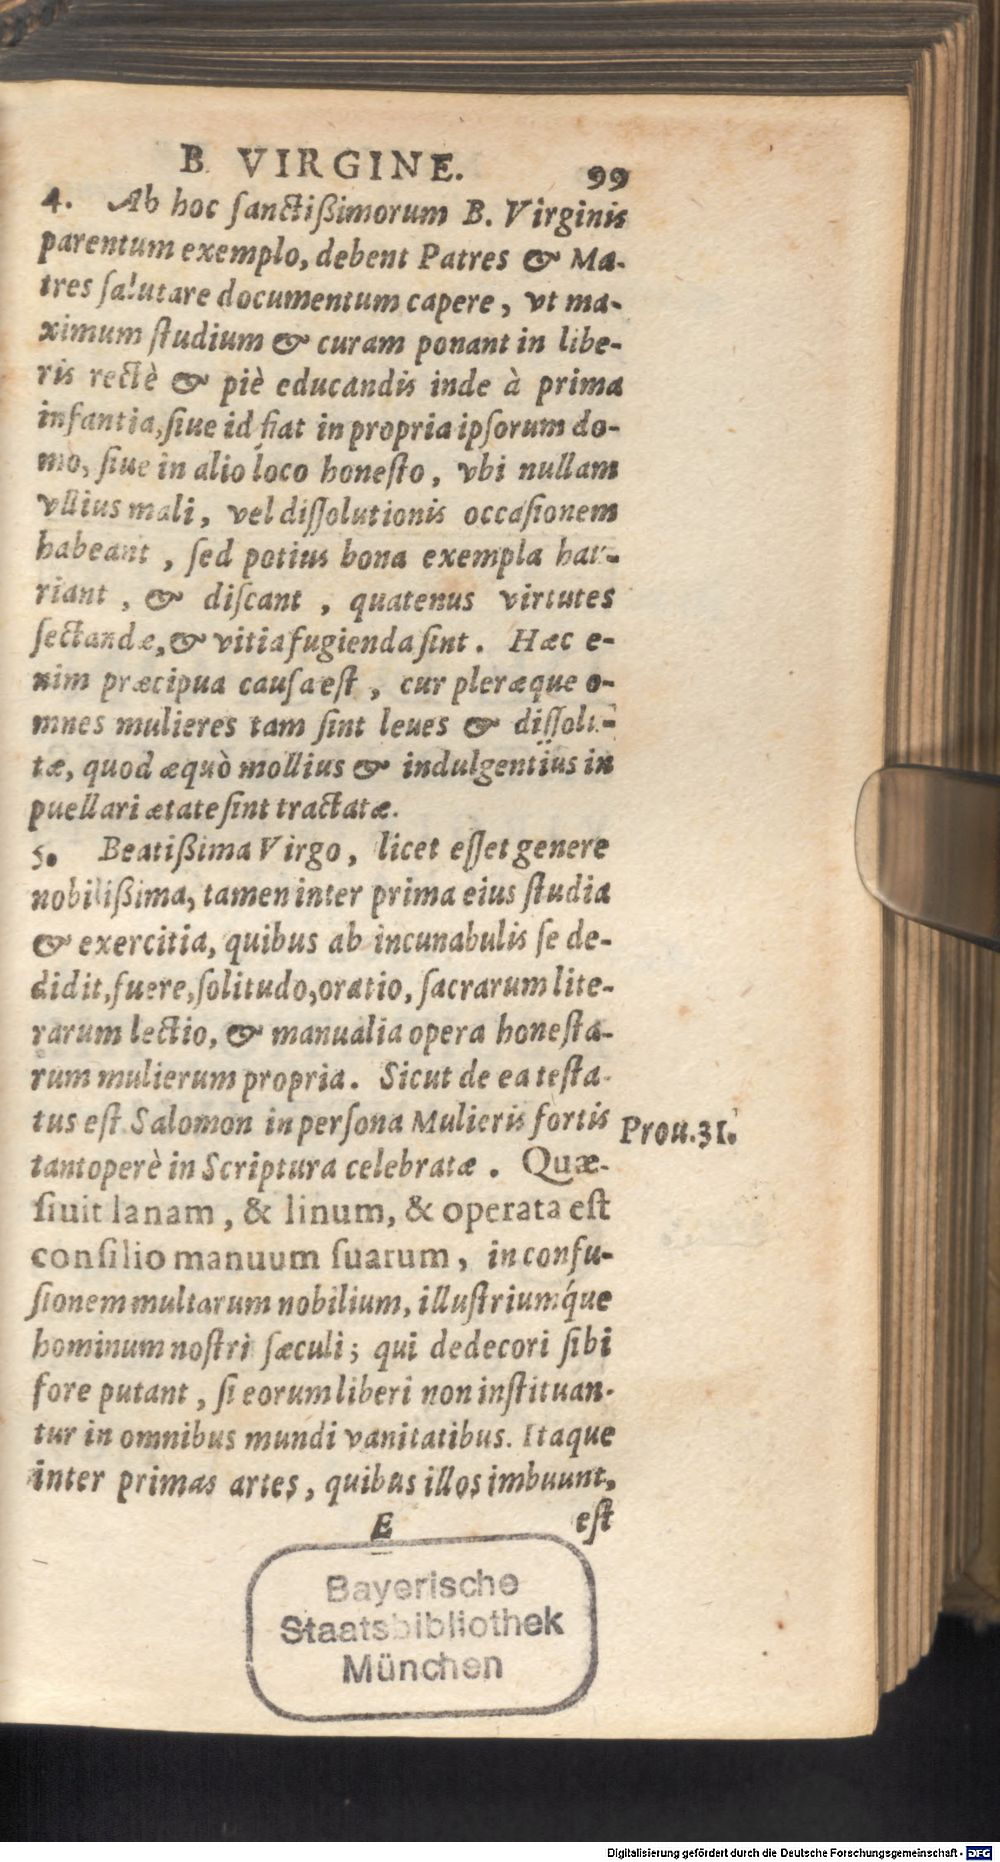 B VIRGINE. 99
4. Ab hoc ſanctißimorum B. Virginis
parentum exemplo, debent Patres & Ma-
tres ſalutare documentum capere, vt ma-
ximum ſtudium & curam ponant in libe-
ris rectè & piè educandis inde à prima
infantia, ſiue id fiat in propria ipſorum do-
mo, ſiue in alio loco honeſto, vbi nullam
vllius mali, vel diſſolutionis occaſionem
habeant, ſed potius bona exempla hau-
riant, & diſcant, quatenus virtutes
ſectandæ, & vitia fugienda ſint. Hæc e-
nim præcipua cauſa eſt, cur pleræque o-
mnes mulieres tam ſint leues & diſſolu-
tæ, quod æquò mollius & indulgentiùs in
puellari ætate ſint tractatæ.
5. Beatißima Virgo, licet eſſet genere
nobilißima, tamen inter prima eius ſtudia
& exercitia, quibus ab incunabulis ſe de-
didit, fuere, ſolitudo, oratio, ſacrarum lite-
rarum lectio, & manualia opera honeſta-
rum mulierum propria. Sicut de ea teſta-
tus eſt Salomon in perſona Mulieris fortis
Prou. 31.
tantoperè in Scriptura celebratæ. Quæ-
ſiuit lanam, & linum, & operata eſt
conſilio manuum ſuarum, in confu-
ſionem multarum nobilium, illuſtriumq́ue
hominum noſtri ſæculi; qui dedecori ſibi
fore putant, ſi eorum liberi non inſtituan-
tur in omnibus mundi vanitatibus. Itaque
inter primas artes, quibus illos imbuunt,
E eſt
Bayerische
Staatsbibliothek
München
Digitalisierung gefördert durch die Deutsche Forschungsgemeinschaft - DFG